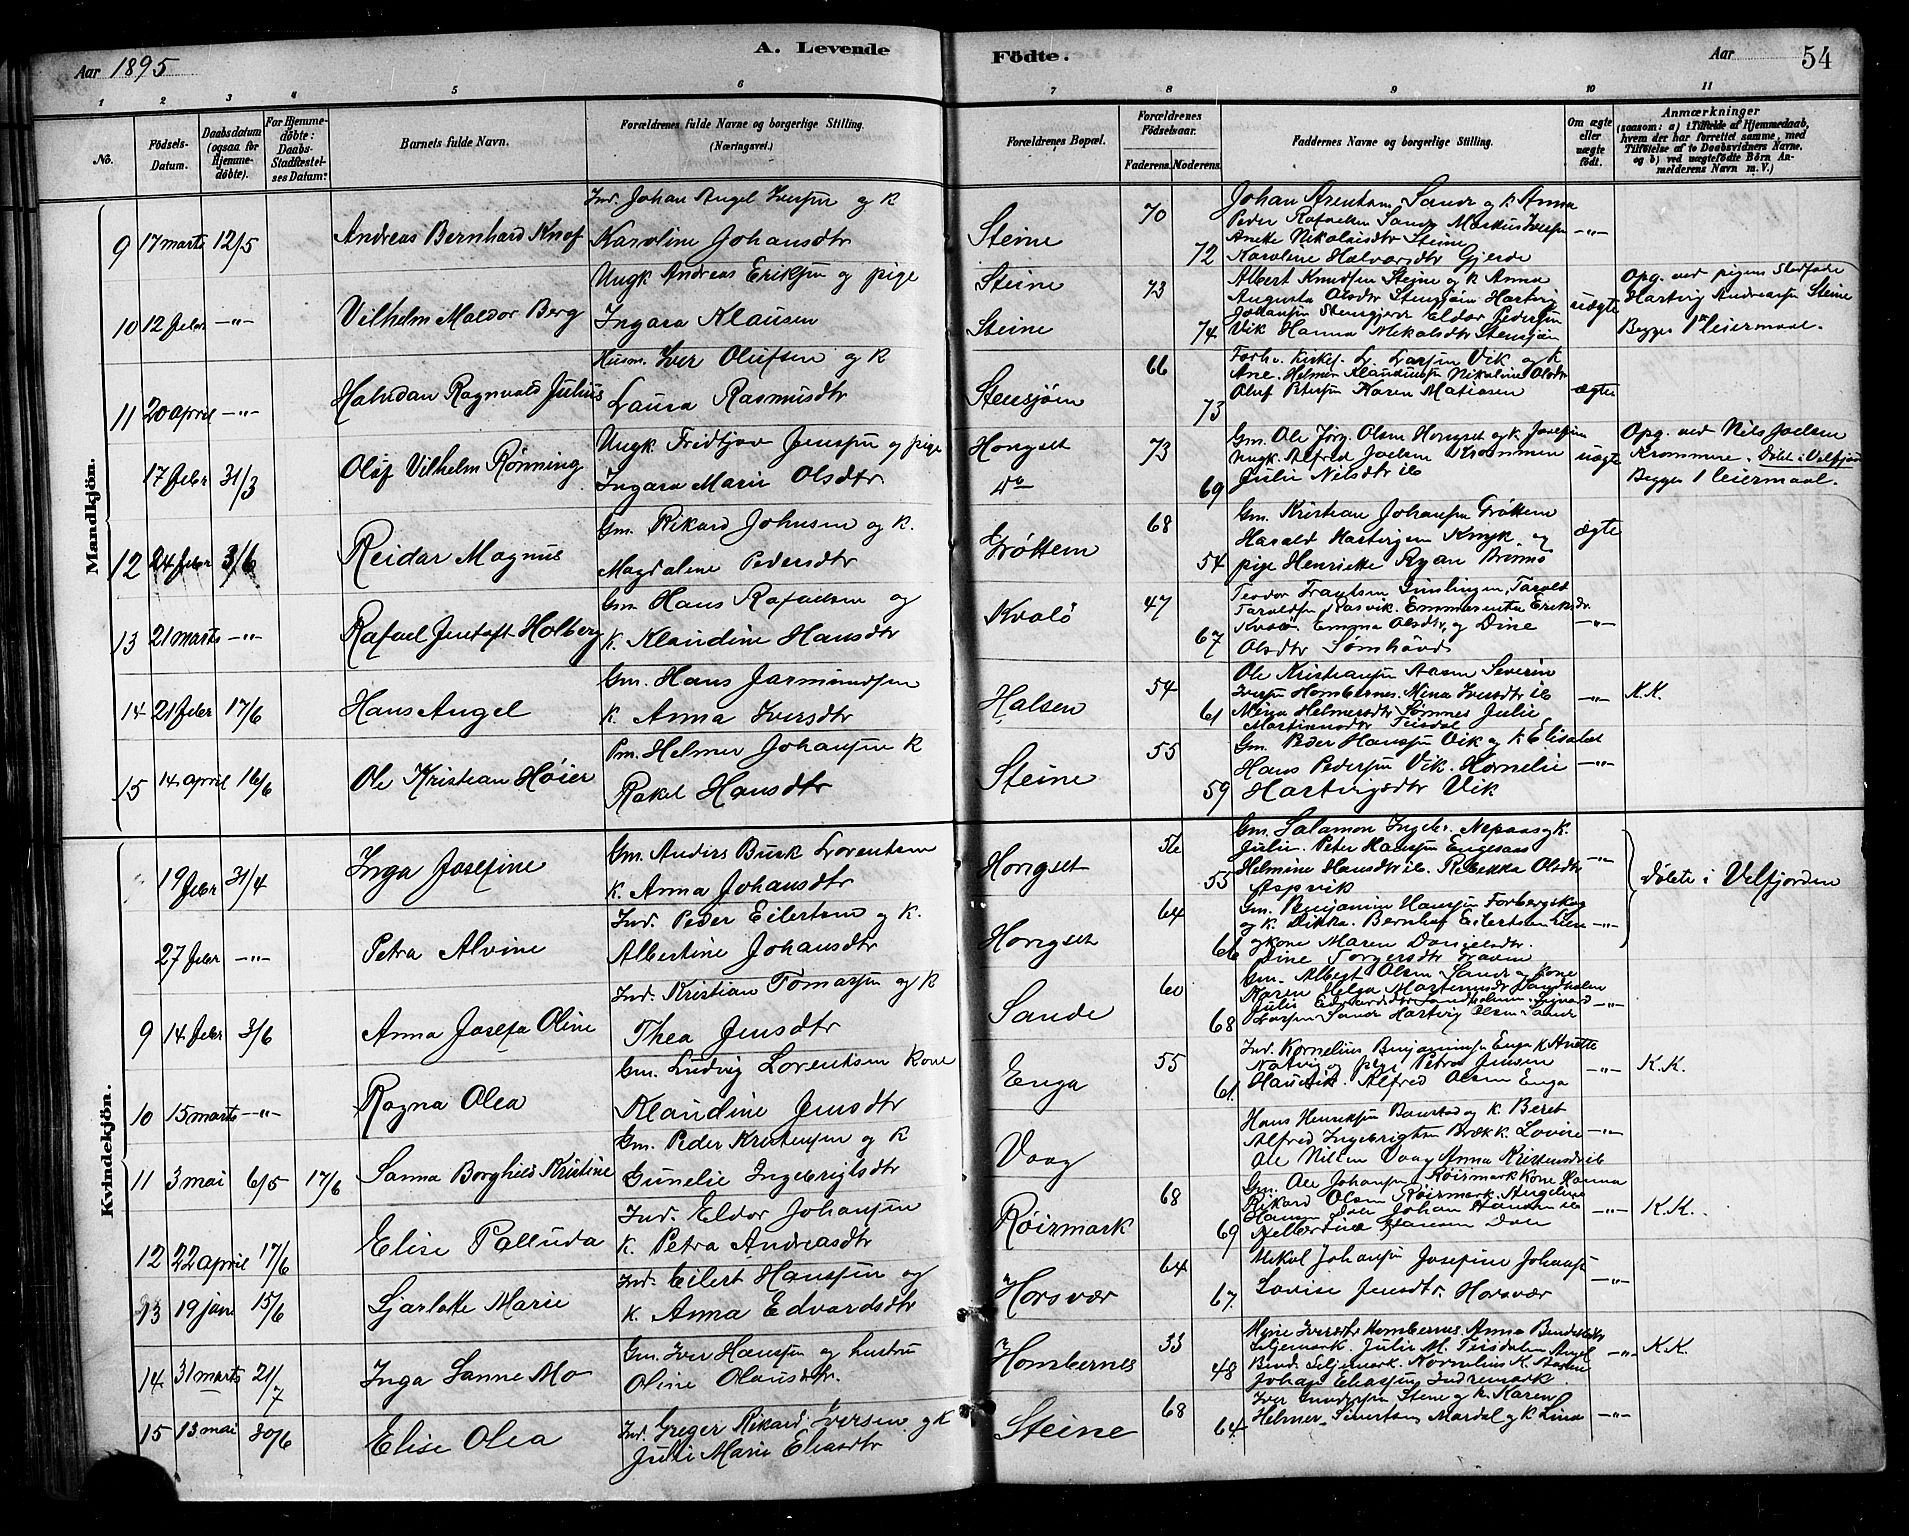 A. Levende
Födte.
Aar 1895
Aar
54
1 2 3 4 5 6 7 8 9 10 11
No.
Födsels-Datum.
Daabsdatum (ogsaa for Hjemmedöbte).
For Hjemmedöbte: Daabs-Stadfæstelses Datum?
Barnets fulde Navn.
Forældrenes fulde Navne og borgerlige Stilling.
(Næringsvei.)
Forældrenes Bopæl.
Forældrenes Födselsaar.
Faderens. Moderens.
Faddernes Navne og borgerlige Stilling.
Om ægte eller uægte født.
Anmærkninger
(saasom: a) i Tilfælde af Hjemmedaab,
hvem der har forrettet samme, med
Tilföielse af to Daabsvidners Navne.
og b) ved uægtefödte Börn Anmelderens Navn m. V.)
Mandkjön.
9 17 marts 12/5 Andreas Bernhard Knof
Ind. Johan Angel Iversen og k
Karoline Johansdtr
Steine 70 72
Johan Arentsen Sande og k. Anna
Peder Rafaelsen Sande Markus Iversen
Anette Nikolaisdtr Steine
Karoline Halvorsdtr Gjerde
-"-
10 12 febr -"- Vilhelm Maldor Berg
Ungk Andreas Eriksen og pige
Ingara Klausen
Steine 73
Steine 74
Albert Knudsen Steine og k. Anna
Augusta Olsdtr Stensjöen Hartvig
Johansen Stensgjerd Eldor Pedersen
Vik Hanna Mekalsdtr Stensjöen
uægte
Opg. ved pigens Stedfader
Hartvig Andreassen Steine
Begges 1ste leiermaal.
11 20 april -"- Halvdan Ragnvald Julius
Husm. Iver Olufsen og k
Laura Rasmusdtr
Stensjöen 66 73
Forh. Kirkes. L. Larsen Vik og k
Ane. Helmer Klaudiussen Nikoline Olsdtr
Oluf Petersen Karen Matiasen
ægte
17 febr 31/3 Oluf Vilhelm Rönning
Ungk Fridtjov Jenssen og pige
Ingara Marie Olsdtr
Hongset 73
Do 69
Gm. Ole Jörg. Olsen Hongset og k. Josefine
Ungk. Alfred Joelsen Krommen
Julie Nilsdtr ib
uægte
Opg. ved Nils Joelsen
Krommen. Döbt i Velfjord
Begges 1 leiermaal.
12 24 febr 3/6 Reidar Magnus
Gm. Rikard Johnsen og k.
Magdalene Pedersdtr
Gröttem 68 54
Gm. Kristian Johansen Gröttem
Harald Hartvigsen Kmyk. og
pige Henriette Ryan Brönnö
ægte
13 21 marts -"- Rafael Jentoft Holberg
Gm Hans Rafaelsen og
k. Klaudine Hansdtr
Kvalö 47 67
Teodor Frantsen Timlingen, Tarald
Taraldsen Rasvik. Emmarentse Eriksdtr
Kvalö. Emma Olsdtr og Dine
Olsdtr Sömhövd
-"-
14 21 febr 17/6 Hans Angel
Gm. Hans Jasmundsen
k. Anna Iversdtr
Halsen 54 61
Ole Kristiansen Aasen Severin
Iversen Hombernes. Mina Iversdtr ib
Mina Helmersdtr Sömnes Julie
Martinusdtr Teisdal
-"- K.K.
15 14 april 16/6 Ole Kristian Höier
Pm. Helmer Johansen k
Rakel Hansdtr
Steine 55 59
Gm. Peder Hanssen Vik og k. Elisabet
Hans Pedersen Vik. Hornelie
Hartvigsdtr Vik
-"-
Kvindekjön.
19 febr 31/4 Inga Josefine
Gm. Anders Busk Lorentsen
k. Anna Johansdtr
Hongset 56 55
Gm. Salamon Ingebr. Nepaas og k.
Julie. Peter Hanssen Engesaas
Helmine Hansdtr ib. Rebekka Olsdtr
Aspvik
-"-
döbte i Velfjorden
27 febr -"- Petra Alvine
Ind. Peder Eilertsen og k.
Albertine Johansdtr
Hongset 64 66
Gm. Benjamin Hanssen Forbergskog
og k. Dikka. Bernhof Eilertsen Lien
og kone Maren Danielsdtr.
Dine Torgersdtr Graven
-"-
9 14 febr 3/6 Anna Josefa Oline
Ind. Kristian Tomassen og k
Thea Jensdtr
Sande 60 68
Gm. Albert Olsen Sande og kone
Karen Helga Martinusdtr Sandholm
Julie Edvardsdtr Sandholmen. Sigvard
Larsen Sande Hartvig Olsen Sande
-"-
10 15 marts -"- Ragna Olea
Gm. Ludvig Lorentsen kone
Klaudine Jensdtr
Enga 55 61.
Ind. Kornelius Benjaminsen Enga k Anette
Natvig og pige Petra Jensen
Hausvik. Alfred Olsen Enga
-"- K.K.
11 3 mai 6/5 17/6 Sanna Borghild Kristine
Gm. Peder Kristensen og k
Gunelie Ingebrigtsdtr
Vaag
Hans Henriksen Baustad og k. Beret
Alfred Ingebrigtsen Bræk k. Lovise
Ole Nilsen Vaag Anna Kristensdtr ib
-"-
12 22 april 17/6 Elise Palluda
Ind. Eldor Johansen
k. Petra Andreasdtr
Röirmark 68 69
Gm. Ole Johansen Röirmark Kone Hanna
Rikard Olsen Röirmark. Angeline
Hansen Dale Johan Hansen ib
Elbertine Hansen Dale
-"- K.K.
13 19 jan 15/6 Sjarlotte Marie
Ind. Eilert Hanssen og
k. Anna Edvardsdtr
Horsvær 64 67.
Mekal Johansen Josefine Johans
Lovise Jensdtr. Horsvær
-"-
14 31 marts 21/7 Inga Sanne Mo
Gm. Iver Hanssen og hustru
Oline Olausdtr.
Hombernes 53 48
Mine Iversdtr Hombernes. Anna Bendiktsdtr
Seljemark. Julie M. Teisdalen Angel
Bend. Seljemark. Kornelius K.
Johan Eliassen Indremark.
-"- K.K.
15 13 mai 30/6 Elise Olea
Ind. Greger Rikard Iversen og k
Julie Marie Eliasdtr
Steine 68 64.
Iver Gundersen Stene og k. Karen
Helmer Sivertsen Mardal og k Lina
-"-